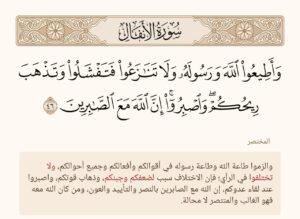 سُورَةُ الْأَنْفَالِ
وَأَطِيعُوا۟ ٱللَّهَ وَرَسُولَهُۥ وَلَا تَنَٰزَعُوا۟ فَتَفْشَلُوا۟ وَتَذْهَبَ
رِيحُكُمْ ۖ وَٱصْبِرُوٓا۟ ۚ إِنَّ ٱللَّهَ مَعَ ٱلصَّٰبِرِينَ ٤٦
المختصر
والزموا طاعة الله وطاعة رسوله في أقوالكم وأفعالكم وجميع أحوالكم، ولا
تختلفوا في الرأي؛ فإن الاختلاف سبب لضعفكم وجبنكم، وذهاب قوتكم، واصبروا
عند لقاء عدوكم، إن الله مع الصابرين بالنصر والتأييد والعون، ومن كان الله معه
فهو الغالب والمنتصر لا محالة.